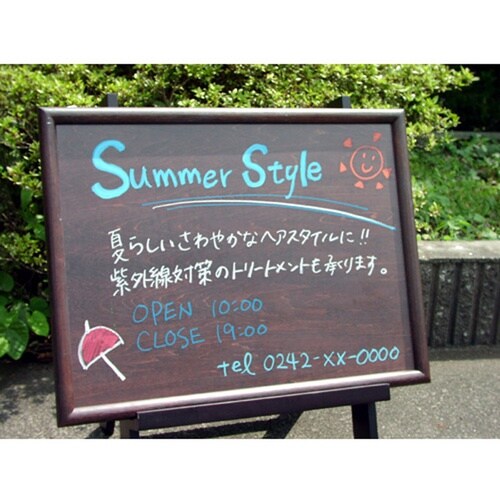 Summer Style
夏らしいさわやかなヘアスタイルに!!
紫外線対策のトリートメントも承ります。
OPEN 10:00
CLOSE 19:00
tel 0242-XX-0000